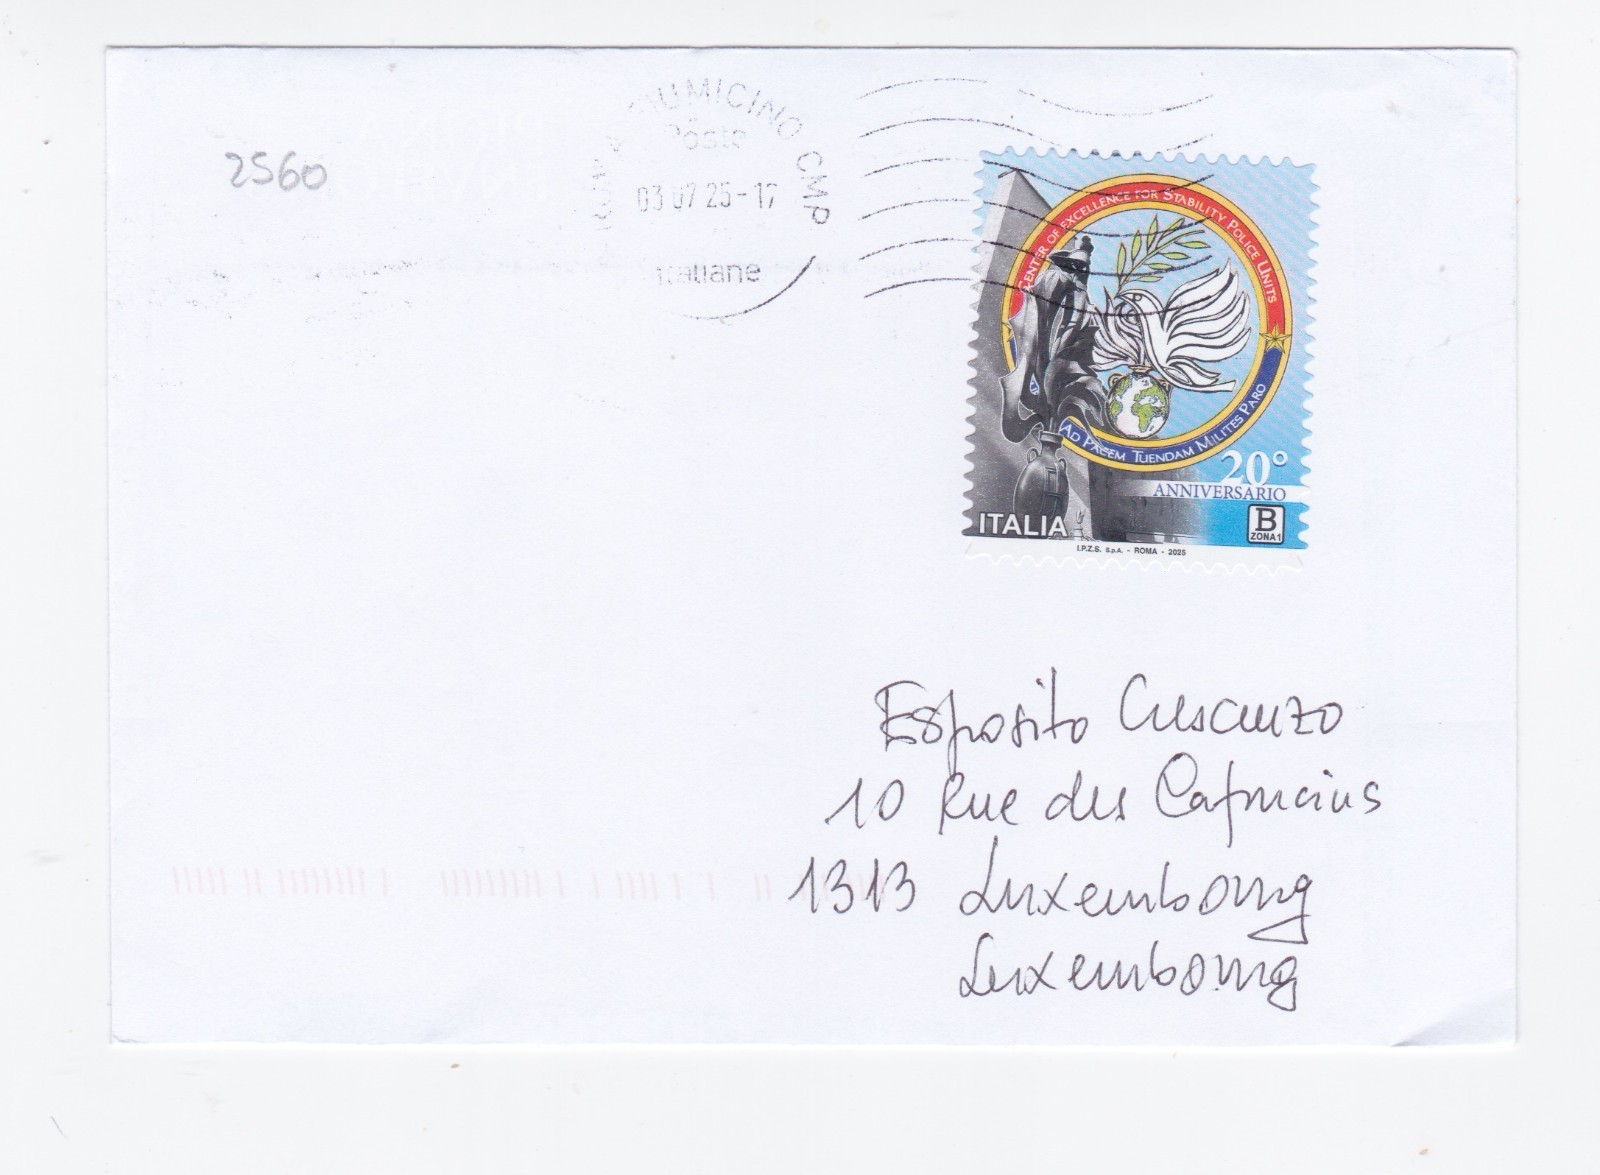 2560
FIUMICINO CMP
Poste
03 07 25-17
italiane
CENTER OF EXCELLENCE FOR STABILITY POLICE UNITS
AD PACEM TUENDAM MILITES PARO
20°
ANNIVERSARIO
ITALIA
B
ZONA 1
I.P.Z.S. S.p.A. - ROMA - 2025
Esposito Crescenzo
10 Rue des Capucins
1313 Luxembourg
Luxembourg